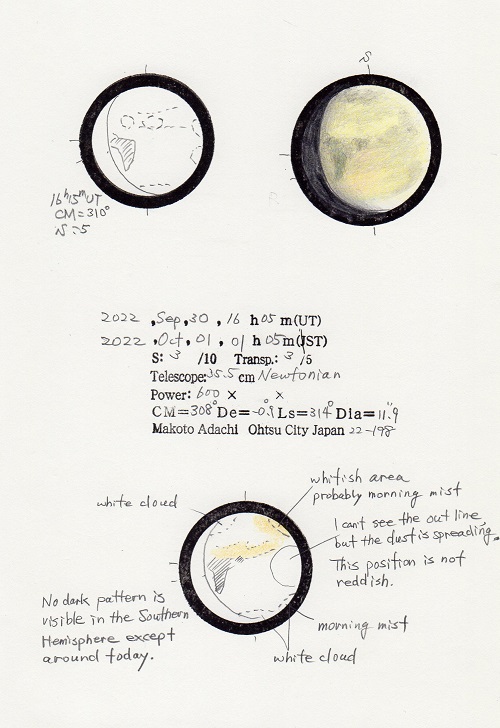 S
16h15mUT
CM=310°
2022 ,Sep,30 , 16 h 05 m(UT)
2022 ,Oct, 01 , 01 h 05m(JST)
S: 3 /10 Transp.: 3 /5
Telescope:35.5 cm Newtonian
Power: 600 × ×
CM=308°De= -0.9°Ls=314°Dia=11.9"
Makoto Adachi Ohtsu City Japan 22-198
whitish area
probably morning mist
white cloud
I cant see the out line,
but the dust is spreading.
This position is not
reddish.
No dark pattern is
visible in the Southern
Hemisphere except
around today.
morning mist
white cloud